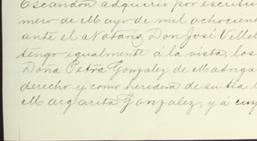 Escandón adquirió por escritu
mero de Mayo de mil ochocien
ante el Notario Don José Villel
tengo igualmente á la vista, los
Doña Petra Gonzalez de Madriga
derecho y como heredera de su tia
Margarita Gonzalez, y á cuy